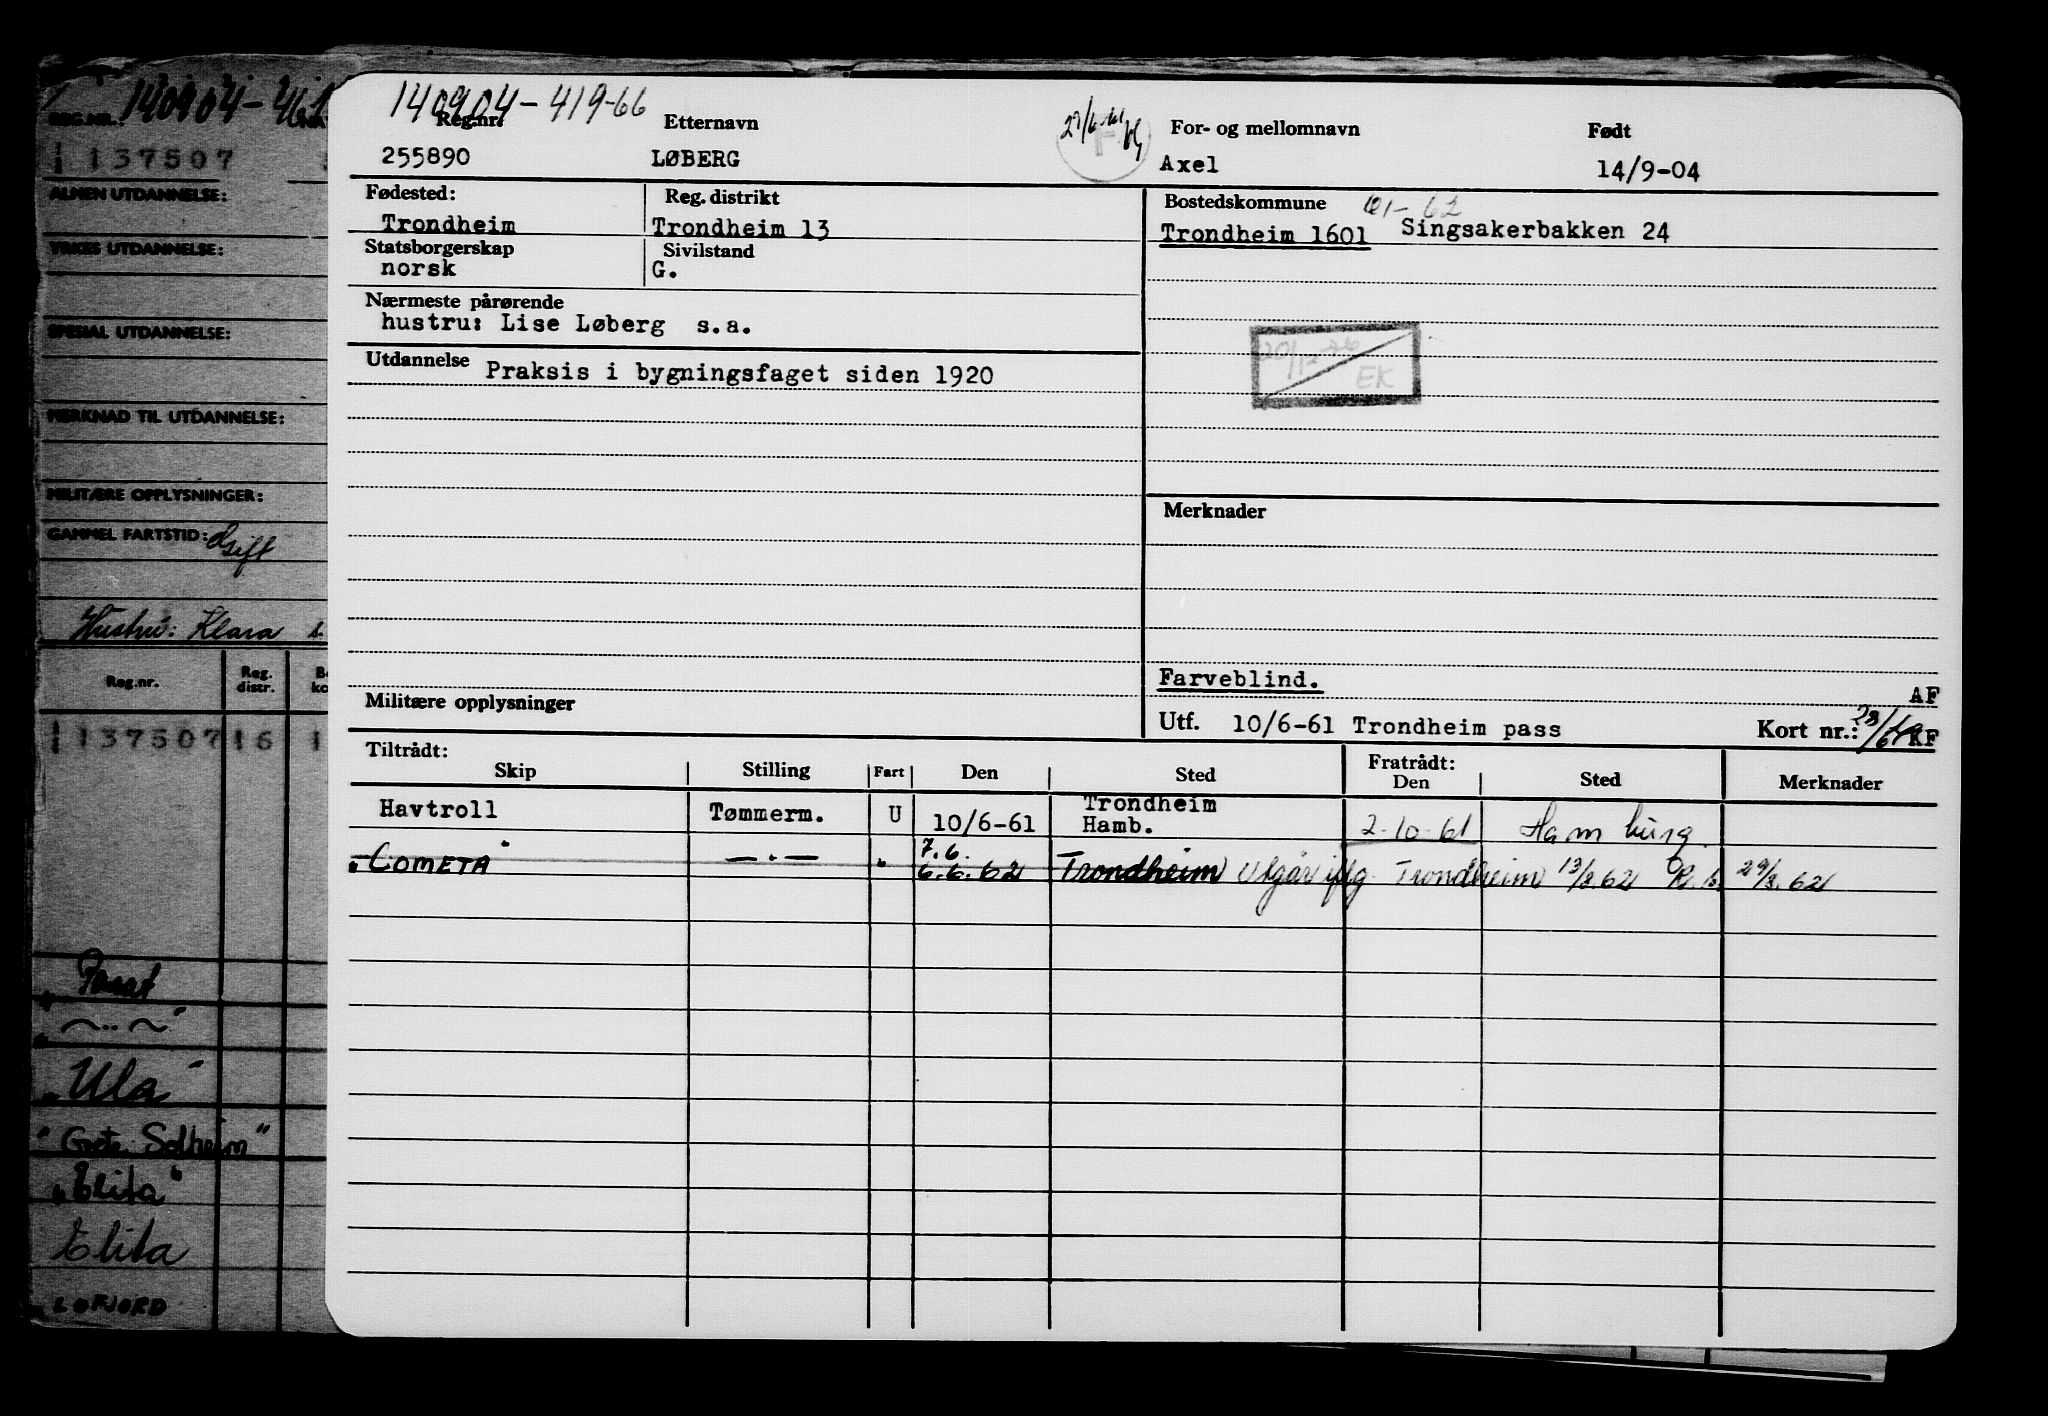 140904-419-66
Reg.nr. Etternavn 27/6-61 For- og mellomnavn Født
255890 LØBERG F Axel 14/9-04
Fødested: Reg. distrikt Bostedskommune 61-62
Trondheim Trondheim 13 Trondheim 1601 Singsakerbakken 24
Statsborgerskap Sivilstand
norsk G.
Nærmeste pårørende
hustru: Lise Løberg s.a.
Utdannelse Praksis i bygningsfaget siden 1920
EK
Merknader
Farveblind.
AF
Militære opplysninger Utf. 10/6-61 Trondheim pass Kort nr.: KF
Tiltrådt: Fratrådt:
Skip Stilling Fart Den Sted Den Sted Merknader
Havtroll Tømmerm. U 10/6-61 Trondheim
Hamb. 2-10-61 Hamburg
7.6.
"COMETA" —"— " 6.6.62 Trondheim Utgår iflg. Trondheim 13/8 62 R.s. 29/8.62
140904-461
REG.NR.:
137507
ALMEN UTDANNELSE:
YRKES UTDANNELSE:
SPESIAL UTDANNELSE:
MERKNAD TIL UTDANNELSE:
MILITÆRE OPPLYSNINGER:
GAMMEL FARTSTID: Gift
Hustru: Klara s.
Reg.nr. Reg. distr. B ko
137507 16 1
"Passat
"~..~"
"Ula"
"Grete Solheim"
"Elita"
Elita
LOFJORD